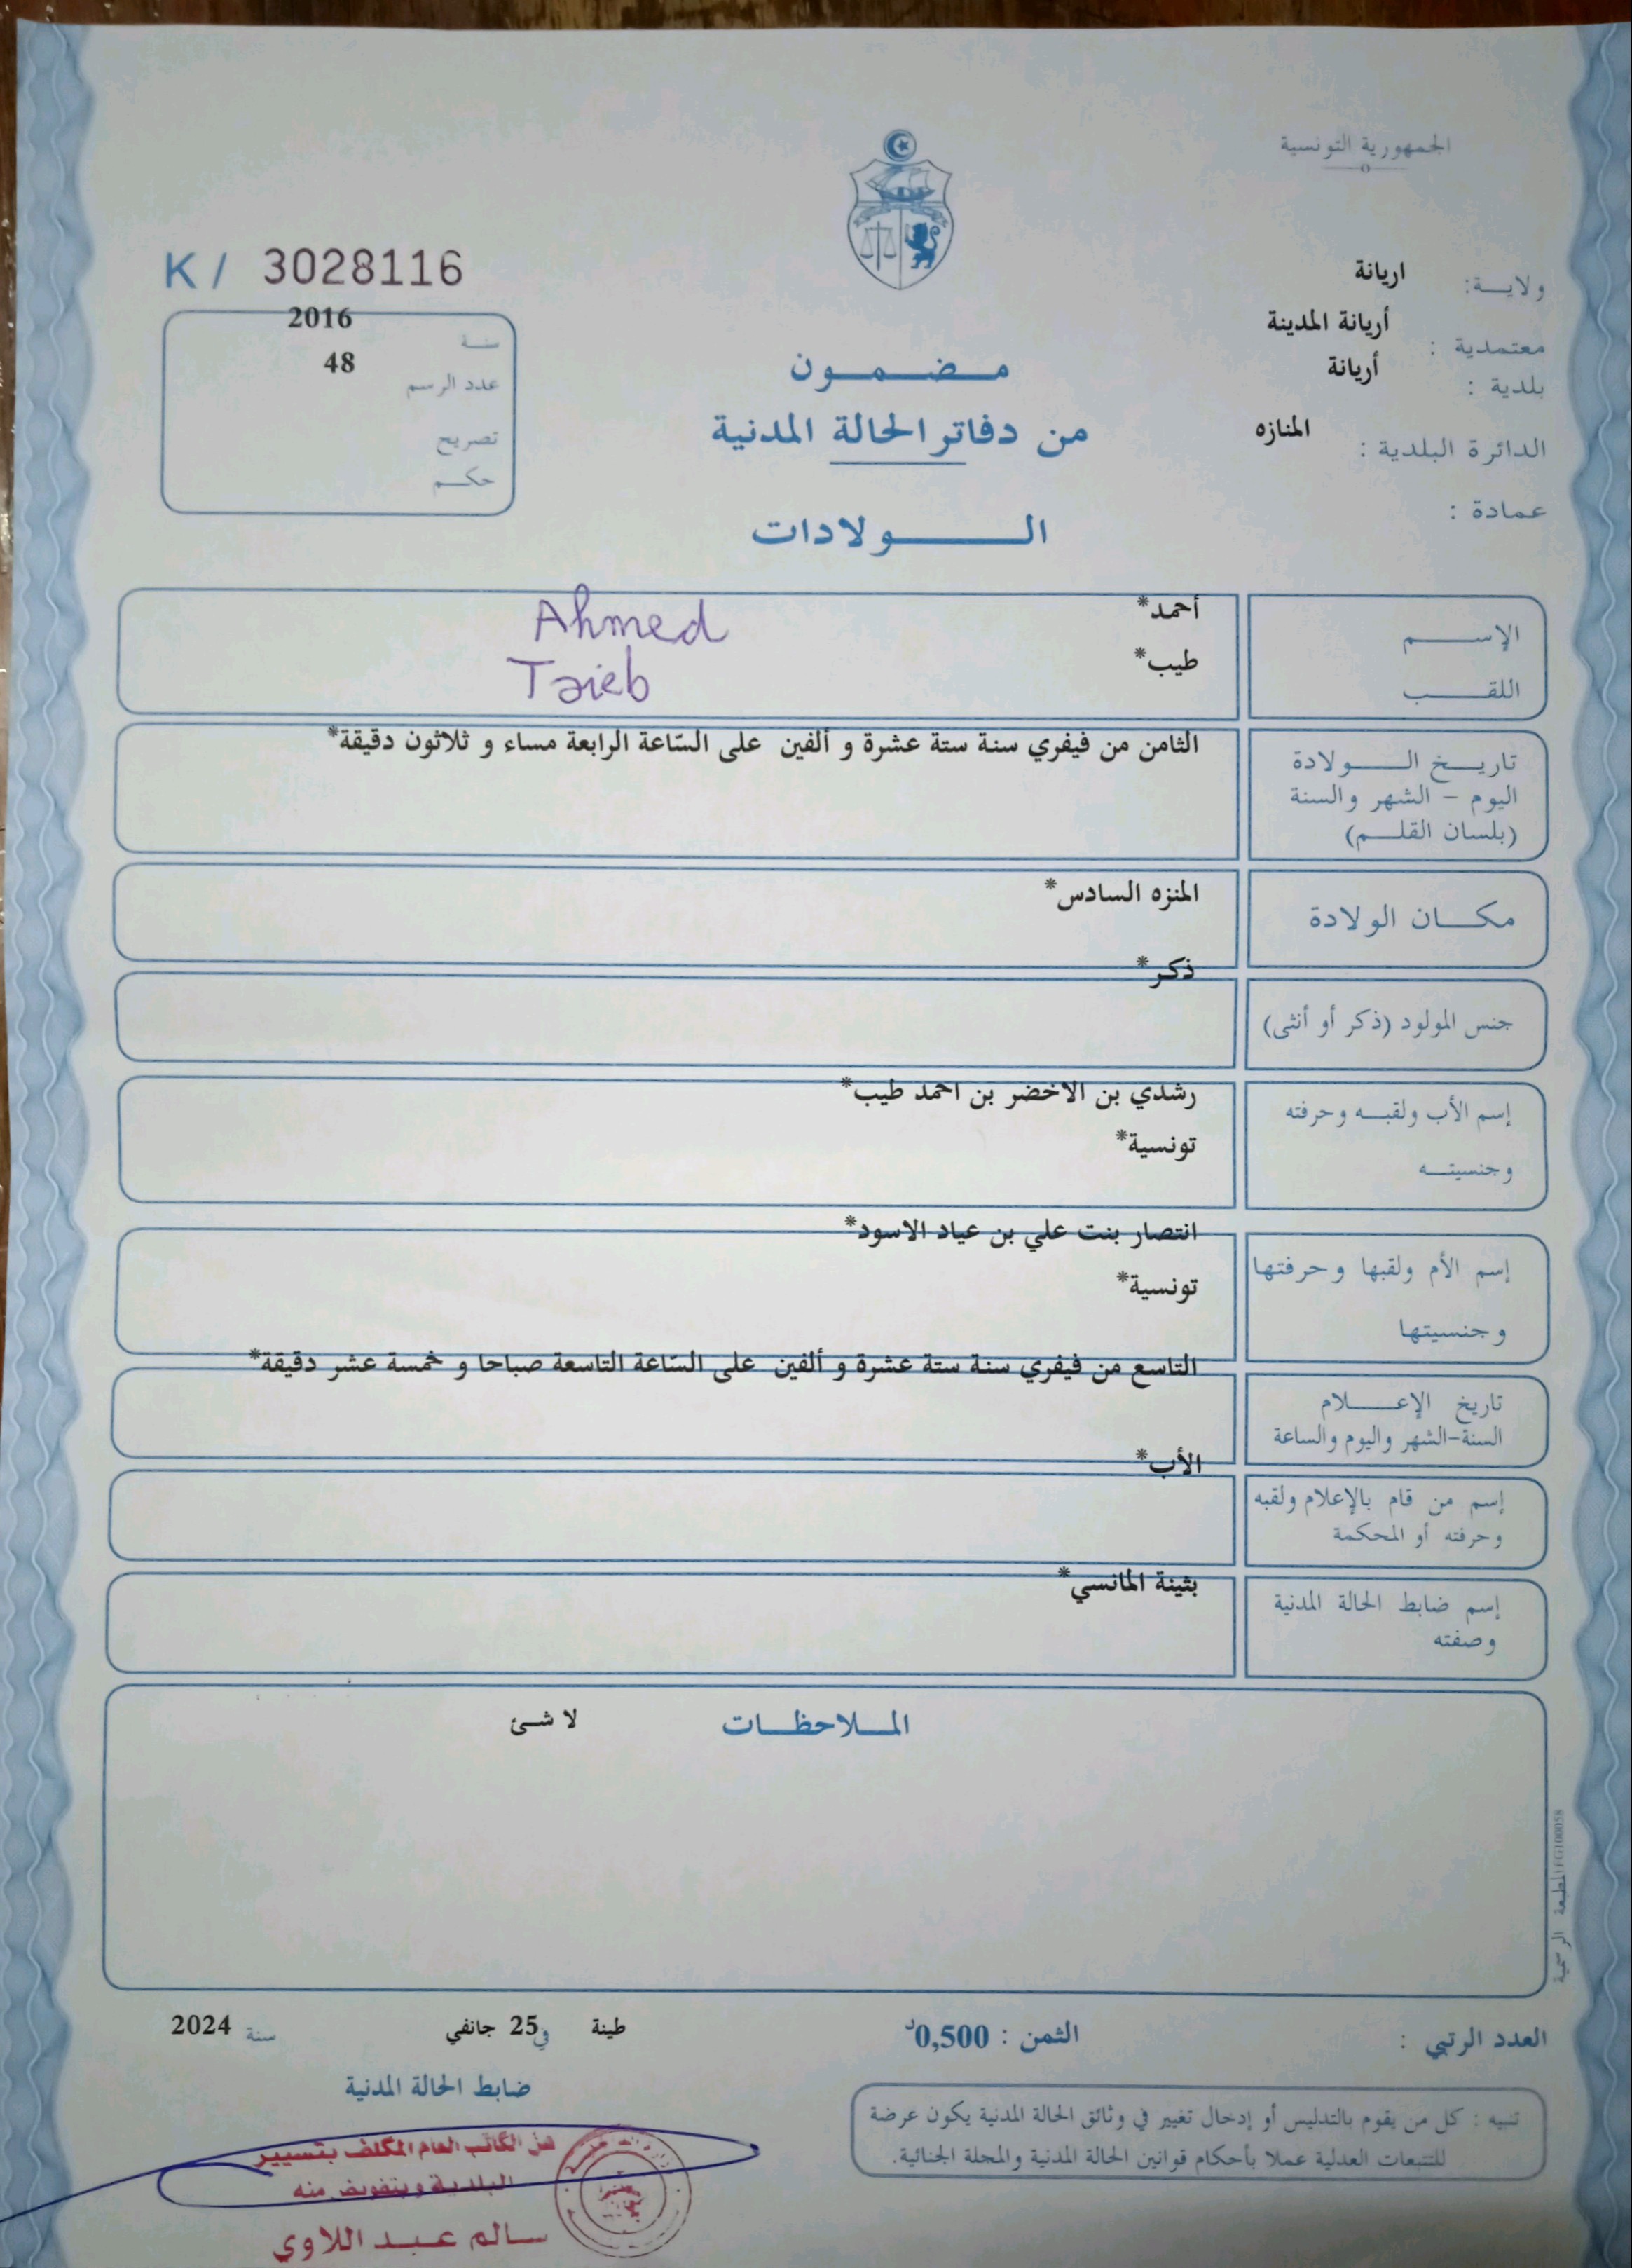 الجمهورية التونسية
ولايــة: اريانة
معتمدية : أريانة المدينة
بلدية : أريانة
الدائرة البلدية : المنازه
عمادة :
K / 3028116
سنة 2016
عدد الرسم 48
تصريح
حكم
مضمون
من دفاتر الحالة المدنية
الولادات
الإسم أحمد*
Ahmed
اللقب طيب*
Taieb
تاريخ الولادة
اليوم - الشهر والسنة
(بلسان القلم)
الثامن من فيفري سنة ستة عشرة و ألفين على السّاعة الرابعة مساء و ثلاثون دقيقة*
مكان الولادة
المنزه السادس*
جنس المولود (ذكر أو أنثى)
ذكر*
إسم الأب ولقبه وحرفته
وجنسيته
رشدي بن الاخضر بن احمد طيب*
تونسية*
إسم الأم ولقبها وحرفتها
وجنسيتها
انتصار بنت علي بن عياد الاسود*
تونسية*
تاريخ الإعلام
السنة-الشهر واليوم والساعة
التاسع من فيفري سنة ستة عشرة و ألفين على السّاعة التاسعة صباحا و خمسة عشر دقيقة*
إسم من قام بالإعلام ولقبه
وحرفته أو المحكمة
الأب*
إسم ضابط الحالة المدنية
وصفته
بثينة المانسي*
الملاحظات لا شئ
المطبعة الرسمية
العدد الرتبي :
الثمن : 0,500د
طينة في 25 جانفي سنة 2024
ضابط الحالة المدنية
تنبيه : كل من يقوم بالتدليس أو إدخال تغيير في وثائق الحالة المدنية يكون عرضة
للتتبعات العدلية عملا بأحكام قوانين الحالة المدنية والمجلة الجنائية.
الكاتب العام المكلف بتسيير
البلدية وبتفويض منه
سالم عبد اللاوي